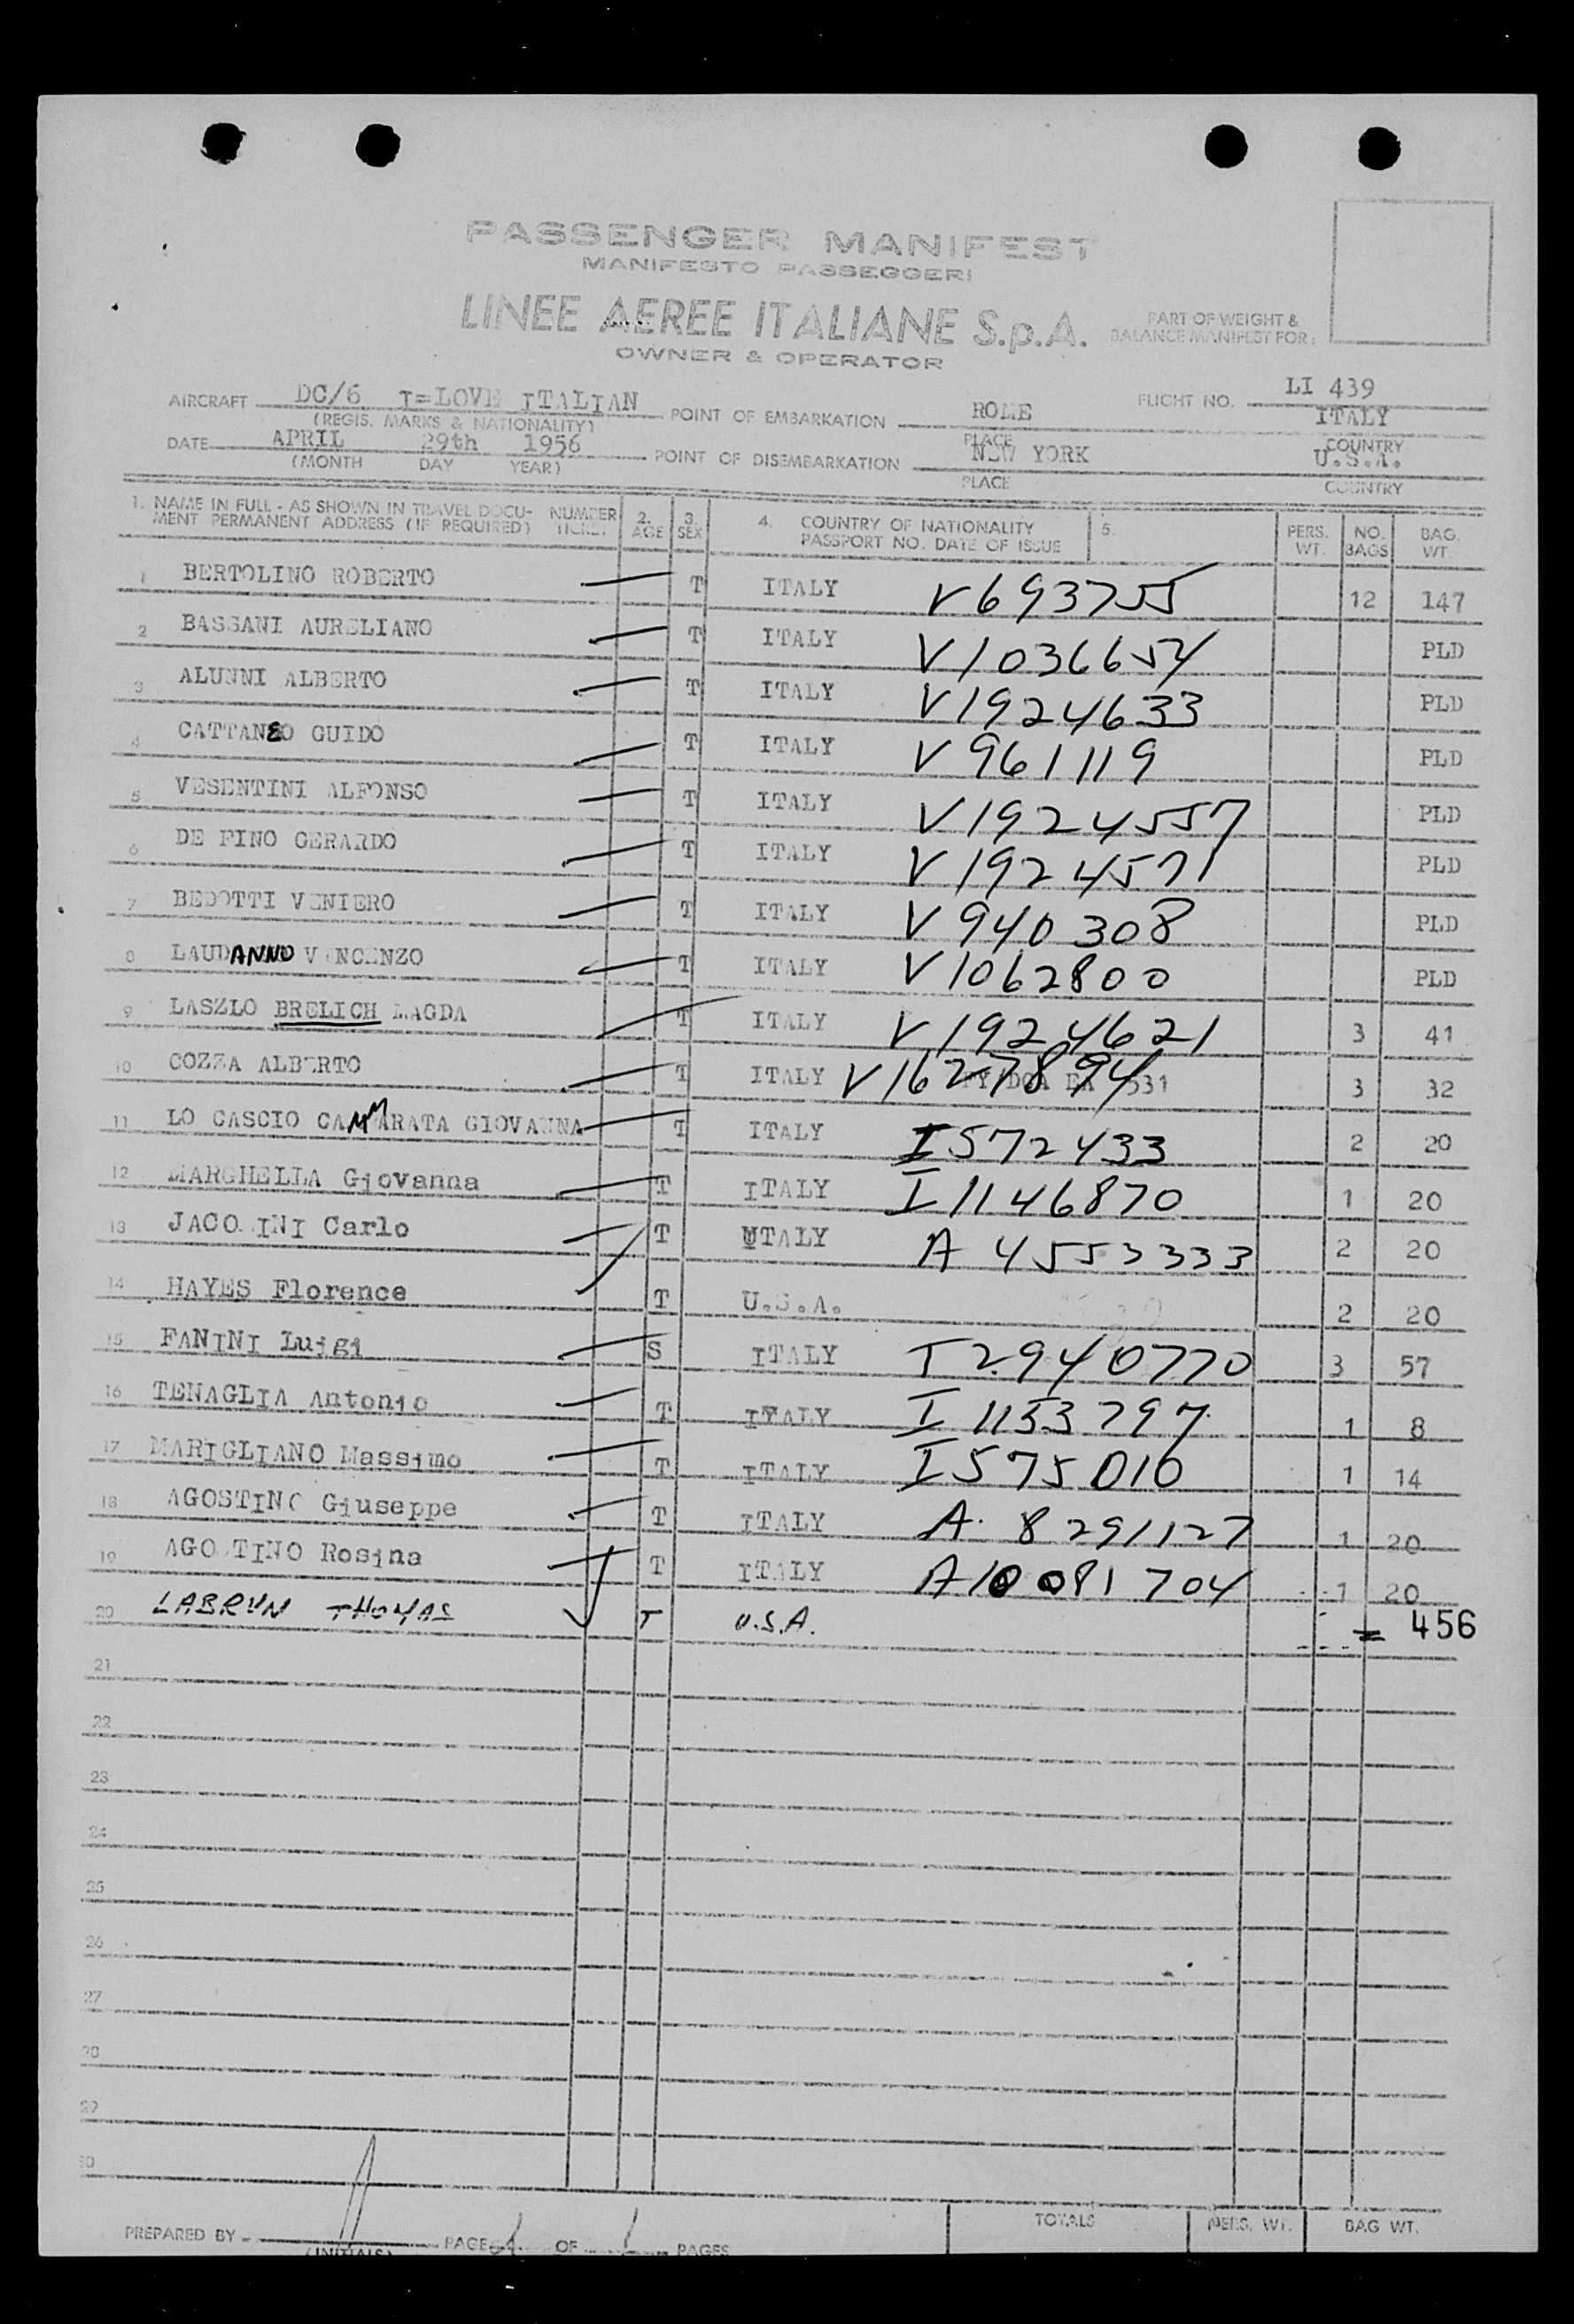 PASSENGER MANIFEST
MANIFESTO PASSEGGERI
LINEE AEREE ITALIANE S.p.A.
OWNER & OPERATOR
PART OF WEIGHT &
BALANCE MANIFEST FOR:
AIRCRAFT DC/6 I=LOVE ITALIAN POINT OF EMBARKATION ROME FLIGHT NO. LI 439
(REGIS. MARKS & NATIONALITY) PLACE ITALY COUNTRY
DATE APRIL 29th 1956 POINT OF DISEMBARKATION NEW YORK U.S.A.
(MONTH DAY YEAR) PLACE COUNTRY
1. NAME IN FULL - AS SHOWN IN TRAVEL DOCU- NUMBER 2. 3. 4. COUNTRY OF NATIONALITY 5. PERS. NO. BAG.
MENT PERMANENT ADDRESS (IF REQUIRED) TICKET AGE SEX PASSPORT NO. DATE OF ISSUE WT. BAGS WT.
1 BERTOLINO ROBERTO T ITALY V693755 12 147
2 BASSANI AURELIANO T ITALY V1036654 PLD
3 ALUNNI ALBERTO T ITALY V1924633 PLD
4 CATTANEO GUIDO T ITALY V961119 PLD
5 VESENTINI ALFONSO T ITALY V1924557 PLD
6 DE FINO GERARDO T ITALY V1924571 PLD
7 BEDOTTI VENIERO T ITALY V940308 PLD
8 LAUDANNO VINCENZO T ITALY V1062800 PLD
9 LASZLO BRELICH MAGDA T ITALY V1924621 3 41
10 COZZA ALBERTO T ITALY V1627894 531 3 32
11 LO CASCIO CAMMARATA GIOVANNA T ITALY I572433 2 20
12 MARGHELLA Giovanna T ITALY I1146870 1 20
13 Carlo T ITALY A 4553333 2 20
14 HAYES Florence T U.S.A. 2 20
15 FANINI Luigi S ITALY I2940770 3 57
16 TENAGLIA Antonio T ITALY I 1153797 1 8
17 MARIGLIANO Massimo T ITALY I575010 1 14
18 AGOSTINO Giuseppe T ITALY A. 8291127 1 20
19 AGOSTINO Rosina T ITALY A10081704 1 20
20 LABRUN THOMAS T U.S.A. = 456
21
22
23
24
25
26
27
28
29
30
TOTALS PERS. WT. BAG WT.
PREPARED BY PAGE 1 OF 1 PAGES
(INITIALS)